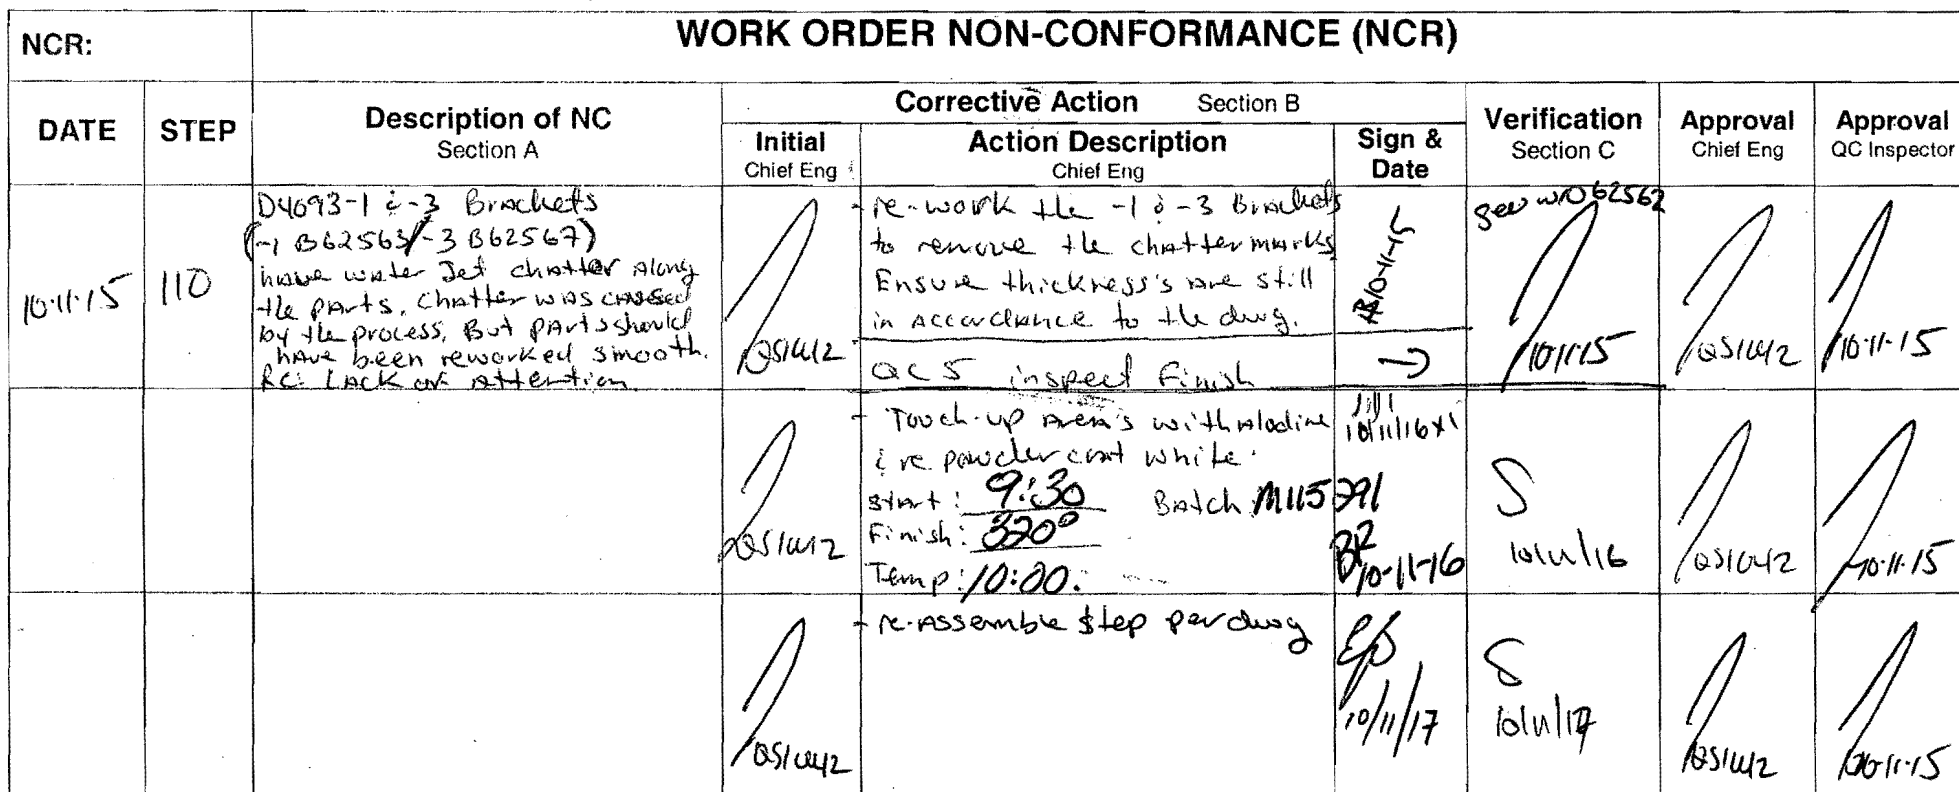 NCR:
WORK ORDER NON-CONFORMANCE (NCR)
DATE
STEP
Description of NC
Section A
Corrective Action Section B
Initial
Chief Eng
Action Description
Chief Eng
Sign &
Date
Verification
Section C
Approval
Chief Eng
Approval
QC Inspector
10-11-15
110
D4693-1 & -3 Brackets
(-1 B62563/-3 B62567)
have water Jet chatter along
the parts. Chatter was caused
by the process, But parts should
have been reworked smooth.
RC: Lack of Attention
- re-work the -1 & -3 Brackets
to remove the chatter marks
Ensure thickness's are still
in accordance to the dwg.
10-11-15
QC5 inspect Finish
→
see w/o 62562
10-11-15
10-11-15
- Touch-up Area's with alodine
& re powder coat white.
Start: 9:30 Batch M115291
Finish: 320°
Temp: 10:00.
10/11/16
10-11-16
10/11/16
10-11-15
- re-Assemble step per dwg
10/11/17
10/11/17
10-11-15